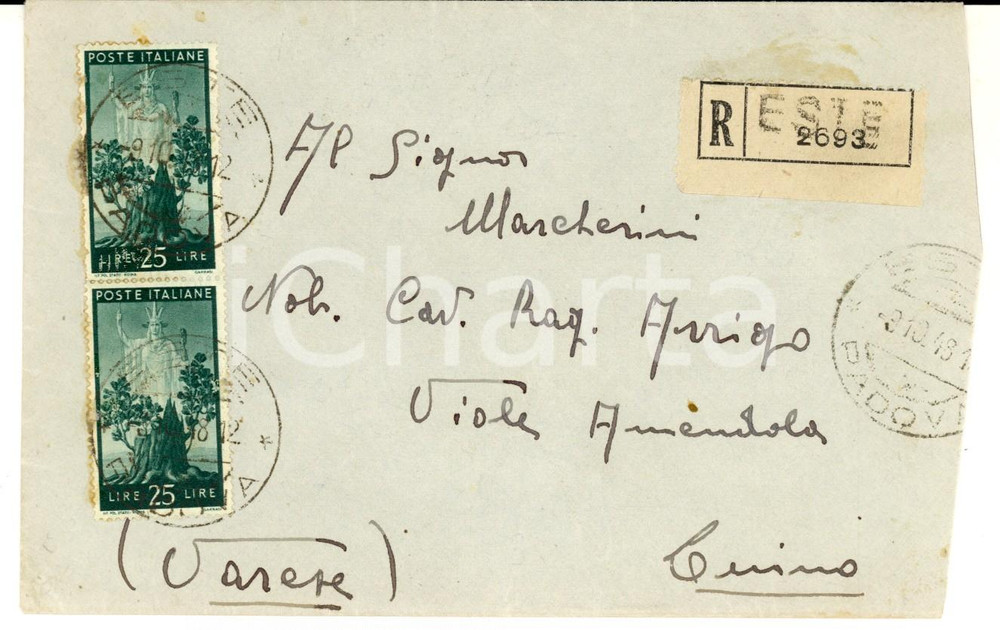 POSTE ITALIANE
LIRE 25 LIRE
POSTE ITALIANE
LIRE 25 LIRE
R ESTE
2693
Al Signor
Marcherini
Nob. Cav. Rag. Arrigo
Viale Amendola
(Varese) Cuino
ESTE
-9.10.48.1
PADOVA
iCharta